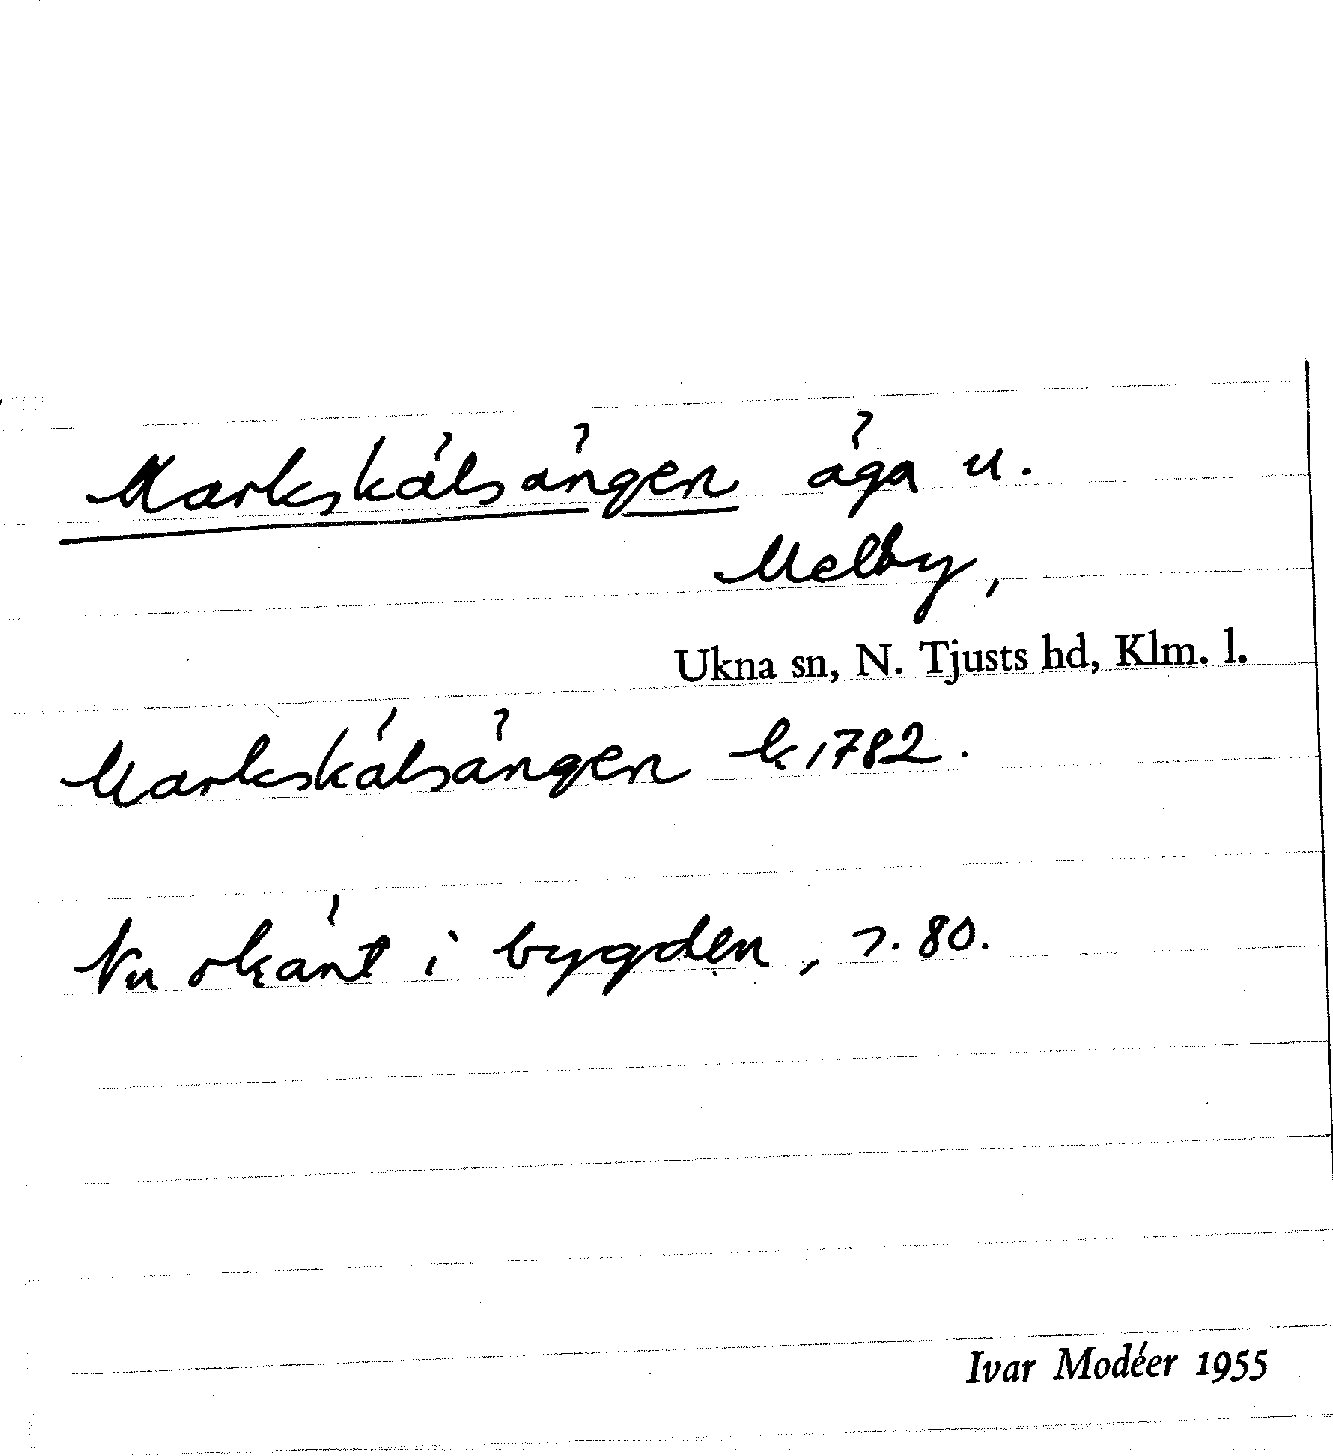 Markskälsängen äga u.
Melby,
Ukna sn, N. Tjusts hd, Klm. l.
Markskälsängen k 1782.
Nu okänt i bygden, 7. 80.
Ivar Modéer 1955